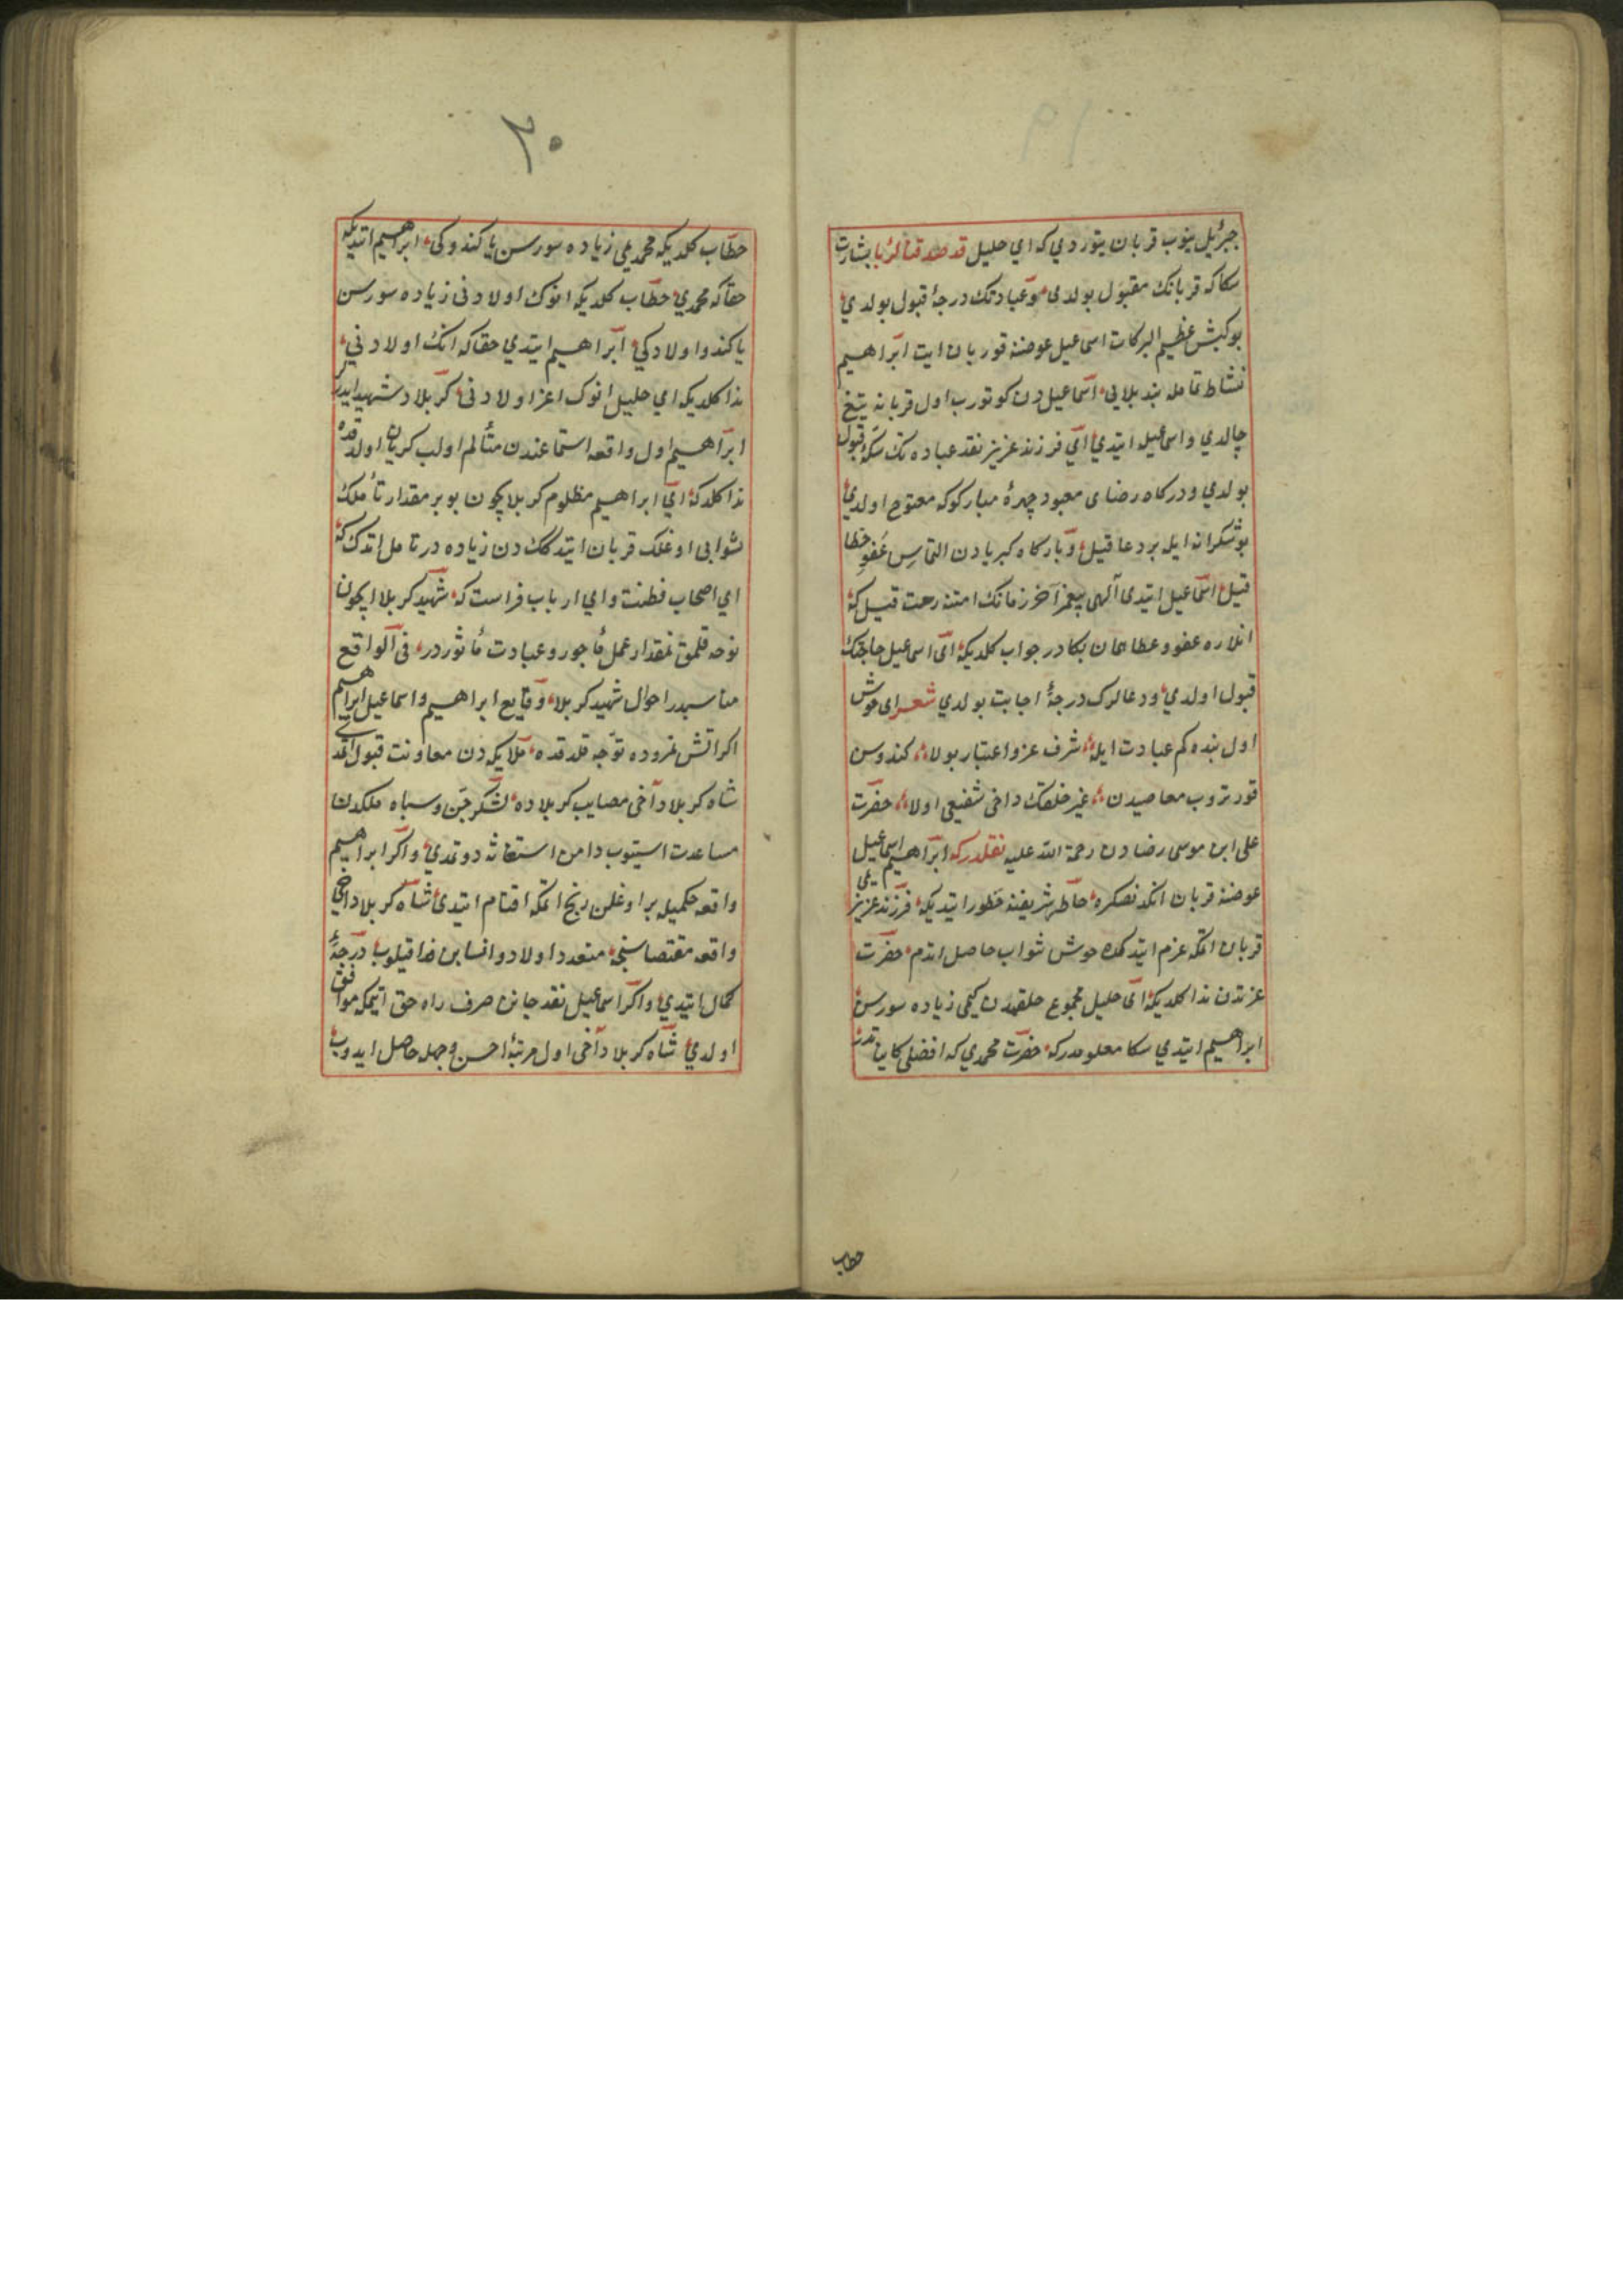 جبرئيل ينوب قربان يتوردي كه اي خليل قد صدقتا لرؤيا بشارت
سكا كه قربانك مقبول بولدى وعبادتك درجۀ قبول بولدي
بو كبش عظيم البركات اسماعيل عوضنه قوربان ايت ابراهيم
نشاط تامله بند بلايى اسماعيل دن كوتورب اول قربانه تيغ
چالدي واسماعيله ايتدي اى فرزند عزيز نقد عبادتك سكۀ قبول
بولدي ودركاه رضاى معبود چهرۀ مباركوكه مفتوح اولدي
بو شكرانه ايله بر دعا قيل وبارگاه كبريادن التماس عفو خطا
قيل اسماعيل ايتدى آلهى پيغمبر آخر زمانك امتنه رحمت قيل كه
انلاره عفو وعطا همان بكادر جواب كلديكه اى اسماعيل حاجتك
قبول اولدي ودعالرك درجۀ اجابت بولدي شعر اى خوش
اول بنده كم عبادت ايله شرف عز واعتبار بولا كندوسن
قورتروب معاصيدن غير خلقك داخى شفيعى اولا حضرت
على ابن موسى رضادن رحمة الله عليه نقلدركه ابراهيم اسماعيل
عوضنه قربان اتكدنصكره خاطر شريفنه خطور ايتديكه فرزند عزيز
قربان اتمكه عزم ايتدكده خوش ثواب حاصل ايتدم حضرت
عزتدن ندا كلديكه اى خليل مجموع خلقمدن كيمى زياده سورسن
ابراهيم ايتدي سكا معلومدركه حضرت محمدي كه افضل كايناتدر
خطاب
٢٠
خطاب كلديكه محمديمى زياده سورسن يا كندوكى ابراهيم ايتديكه
حقا كه محمدي خطاب كلديكه انوك اولادنى زياده سورسن
يا كندو اولادكي ابراهيم ايتدي حقا كه انك اولادني
ندا كلديكه اي خليل انوك اعز اولادنى كربلاد شهيد ايدر
ابراهيم اول واقعه استماعندن متألم اولب كريان اولدقده
ندا كلدكه اي ابراهيم مظلوم كربلا يچون بو بر مقدار تأملك
ثوابى اوغلك قربان ايتدكك دن زياده در تامل اتدك كه
اي اصحاب فطنت واي ارباب فراست كه شهيد كربلا ايچون
نوحه قلمق نمقدار عمل مأجور وعبادت مأثوردر فى الواقع
مناسبدر احوال شهيد كربلا وقايع ابراهيم واسماعيل ابراهيم
اكر اتش نمروده توجه قلدقده ملايكه دن معاونت قبول اتمدى
شاه كربلا دآخى مصايب كربلاده لشكر جن وسپاه ملكدن
مساعدت استيوب دامن استغاثه دوتمدي واكر ابراهيم
واقعه حكميله بر اوغلن ذبح اتمكه اقدام ايتدى شاه كربلا داخى
واقعه مقتضاسنجه متعدد اولاد وانسابن فدا قيلوب درجۀ
كمال ايتدي واكر اسماعيل نقد جانن صرف راه حق ايتمكه موافق
اولدي شاه كربلا دآخى اول مرتبۀ احسن وجهله حاصل ايدوب